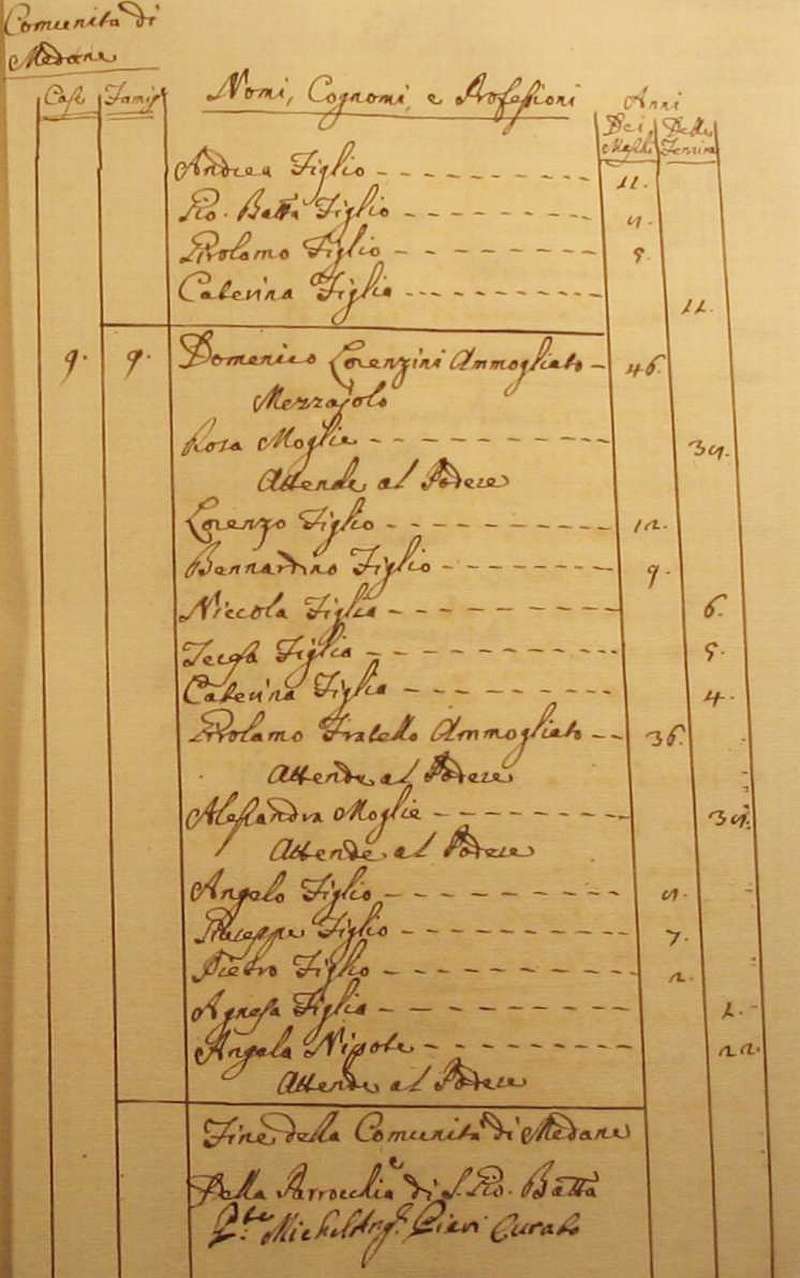 Comunità di
Medane
Case Famig
Nomi, Cognomi, e Professioni
Anni
Dei Maschi
Delle Femine
Andrea Figlio 11.
Gio. Batta Figlio
Girolamo Figlio 5.
Cateri'na Figlia 11.
9. 9. Domenico Lorenzini Ammogliato 46.
Mezzajolo
Rosa Moglie
Attende al Podere
Lorenzo Figlio 12.
Bernardino Figlio 9.
Niccola Figlia 6.
Teresa Figlia 5.
Cateri'na Figlia 4.
Girolamo Fratello Ammogliato 36.
Attende al Podere
Alessandra Moglie
Attende al Podere
Angelo Figlio
Giuseppe Figlio 7.
Pietro Figlio 2.
Agnesa Figlia 1.
Angela Nipote 22.
Attende al Podere
Fine della Comunità di Medane
e
Della Parrocchia di S. Gio. Batta
P.te Michel Ang.o Pieri Curato